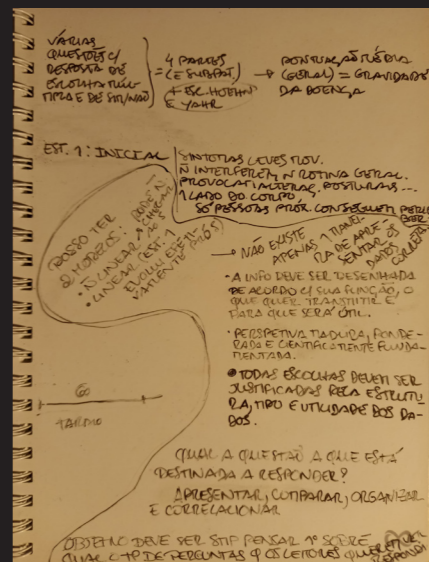 VÁRIAS
QUESTÕES C/
RESPOSTA DE
ESCOLHA MÚL-
TIPLA E DE SIM/NÃO
= 4 PARTES
(E SUBPAT.)
+ ESC. HOEHN
E YAHR
→ PONTUAÇÃO MÉDIA
(GERAL) = GRAVIDADE
DA DOENÇA
EST. 1: INICIAL
SINTOMAS LEVES MOV.
Ñ INTERFEREM N ROTINA GERAL.
PROVOCAM ALTERAÇ. POSTURAIS...
1 LADO DO CORPO
SÓ PESSOAS PRÓX. CONSEGUEM PERCE
BER
POSSO TER
2 MODELOS:
• Ñ LINEAR
• LINEAR (EST. 1
→ NÃO EXISTE
APENAS 1 MANEI-
RA DE APRE-
SENTAR OS
DADOS
CORRETA
• A INFO DEVE SER DESENHADA
DE ACORDO C/ SUA FUNÇÃO, O
QUE QUER TRANSMITIR E
PARA QUE SERÁ ÚTIL.
• PERSPETIVA MADURA, PONDE-
RADA E CIENTIFICAMENTE FUNDA-
MENTADA.
• TODAS ESCOLHAS DEVEM SER
JUSTIFICADAS PELA ESTRUTU-
RA, TIPO E UTILIDADE DOS DA-
DOS.
60
TARDIO
QUAL A QUESTÃO A QUE ESTÁ
DESTINADA A RESPONDER?
APRESENTAR, COMPARAR, ORGANIZAR
E CORRELACIONAR
OBJETIVO DEVE SER SMP PENSAR 1º SOBRE
QUAL O TP DE PERGUNTAS Q OS LEITORES QUEREM VER
RESPONDI